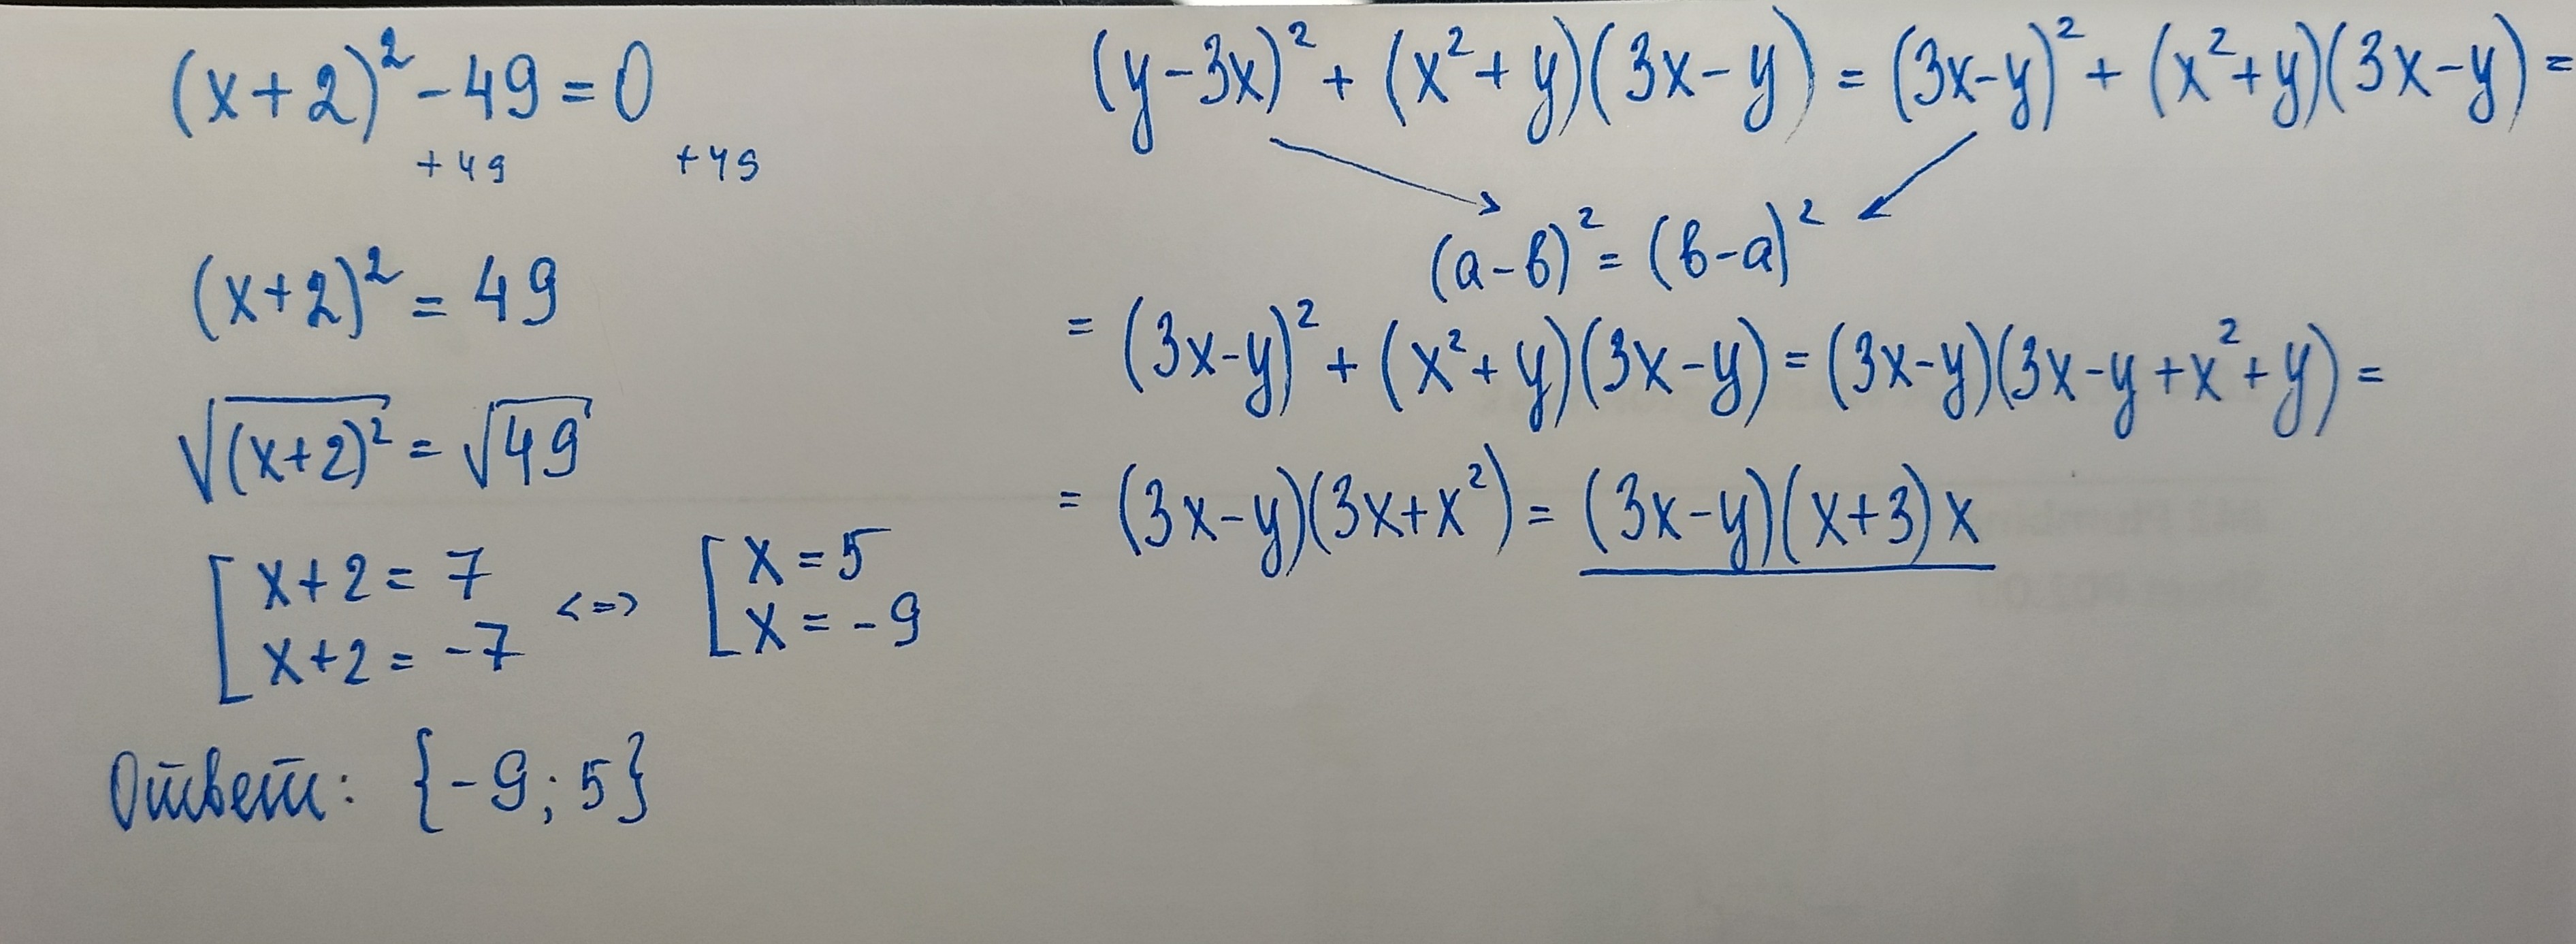 (x+2)² - 49 = 0
+49 +49
(x+2)² = 49
√(x+2)² = √49
[ x+2 = 7 <=> [ x = 5
x+2 = -7 x = -9
Ответ: {-9; 5}
(y-3x)² + (x²+y)(3x-y) = (3x-y)² + (x²+y)(3x-y) =
(a-b)² = (b-a)²
= (3x-y)² + (x²+y)(3x-y) = (3x-y)(3x-y+x²+y) =
= (3x-y)(3x+x²) = (3x-y)(x+3)x